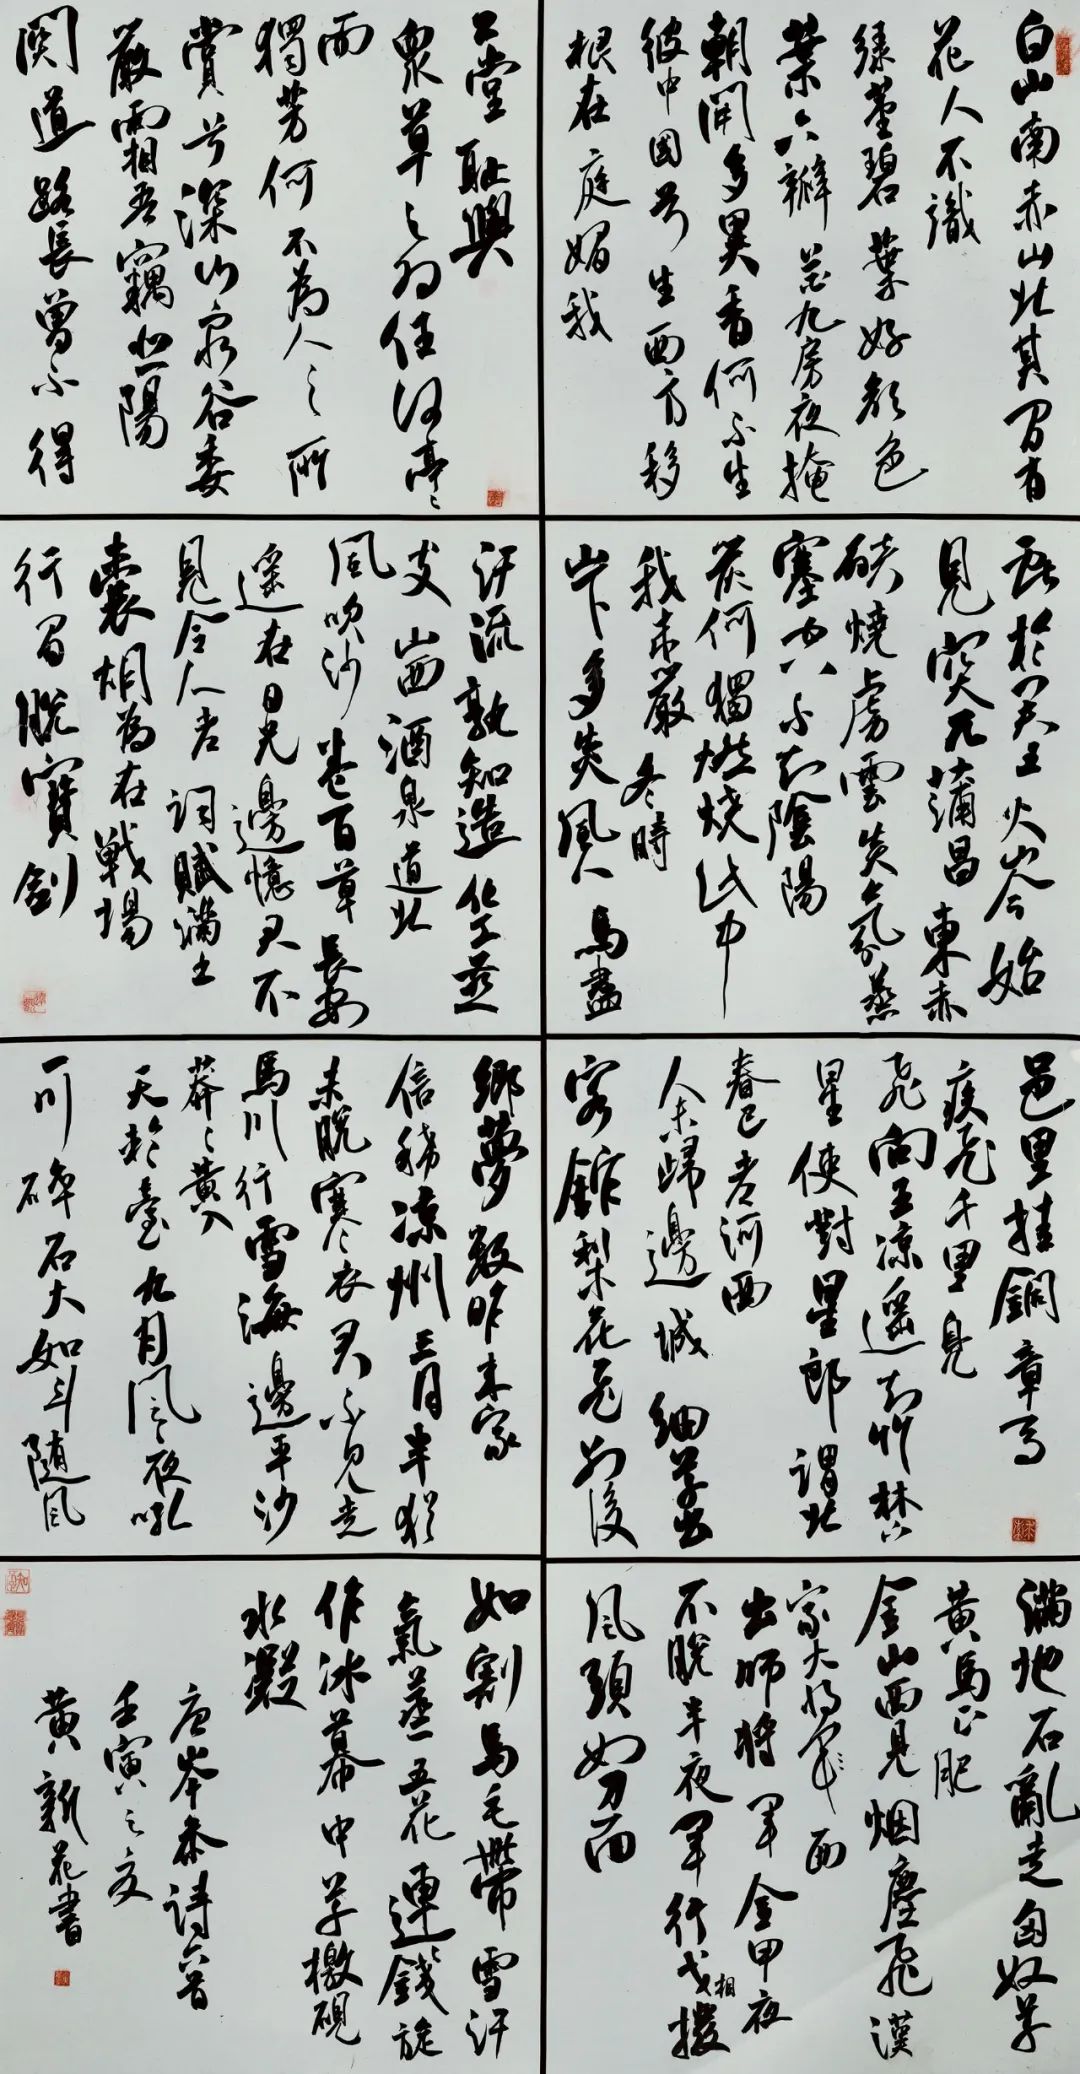 白山南赤山北其間有
花人不識
绿莖碧葉好顏色
葉六瓣花九房夜掩
朝開多異香何不生
彼中國兮生西方移
根在庭媚我
公堂恥與
衆草之為伍何亭々
而
獨芳何不為人之所
賞兮深山窮谷委
嚴霜吾竊悲陽
関道路長曾不得
於君王火山今始
見突兀蒲昌東赤
焰燒虜雲炎氛蒸
塞空不知陰陽
炭何獨燃燒此中
我来嚴冬時
山下多炎風人馬盡
汗流孰知造化工燕
支山西酒泉道北
風吹沙卷百草長安
遥在日光邊憶君不
見令人老詞賦滿書
囊胡為在戰場
行間脱寶劍
邑里挂銅章馬
疾飛千里鳧
飛向五凉遥知竹林下
星使對星郎謂北
春已老河西
人未歸邊城細草出
客館梨花飛别後
鄉夢數昨来家
信稀凉州三月半猶
未脱寒衣君不見走
馬川行雪海邊平沙
莽々黄入
天輪臺九月風夜吼
一川碎石大如斗随風
滿地石亂走匈奴草
黄馬正肥
金山西見烟塵飛漢
家大將軍西
出師將軍金甲夜
不脱半夜軍行戈相撥
風頭如刀面
如割馬毛帶雪汗
氣蒸五花連錢旋
作冰幕中草檄硯
水凝
唐岑参詩六首
壬寅之夏
黄新花書